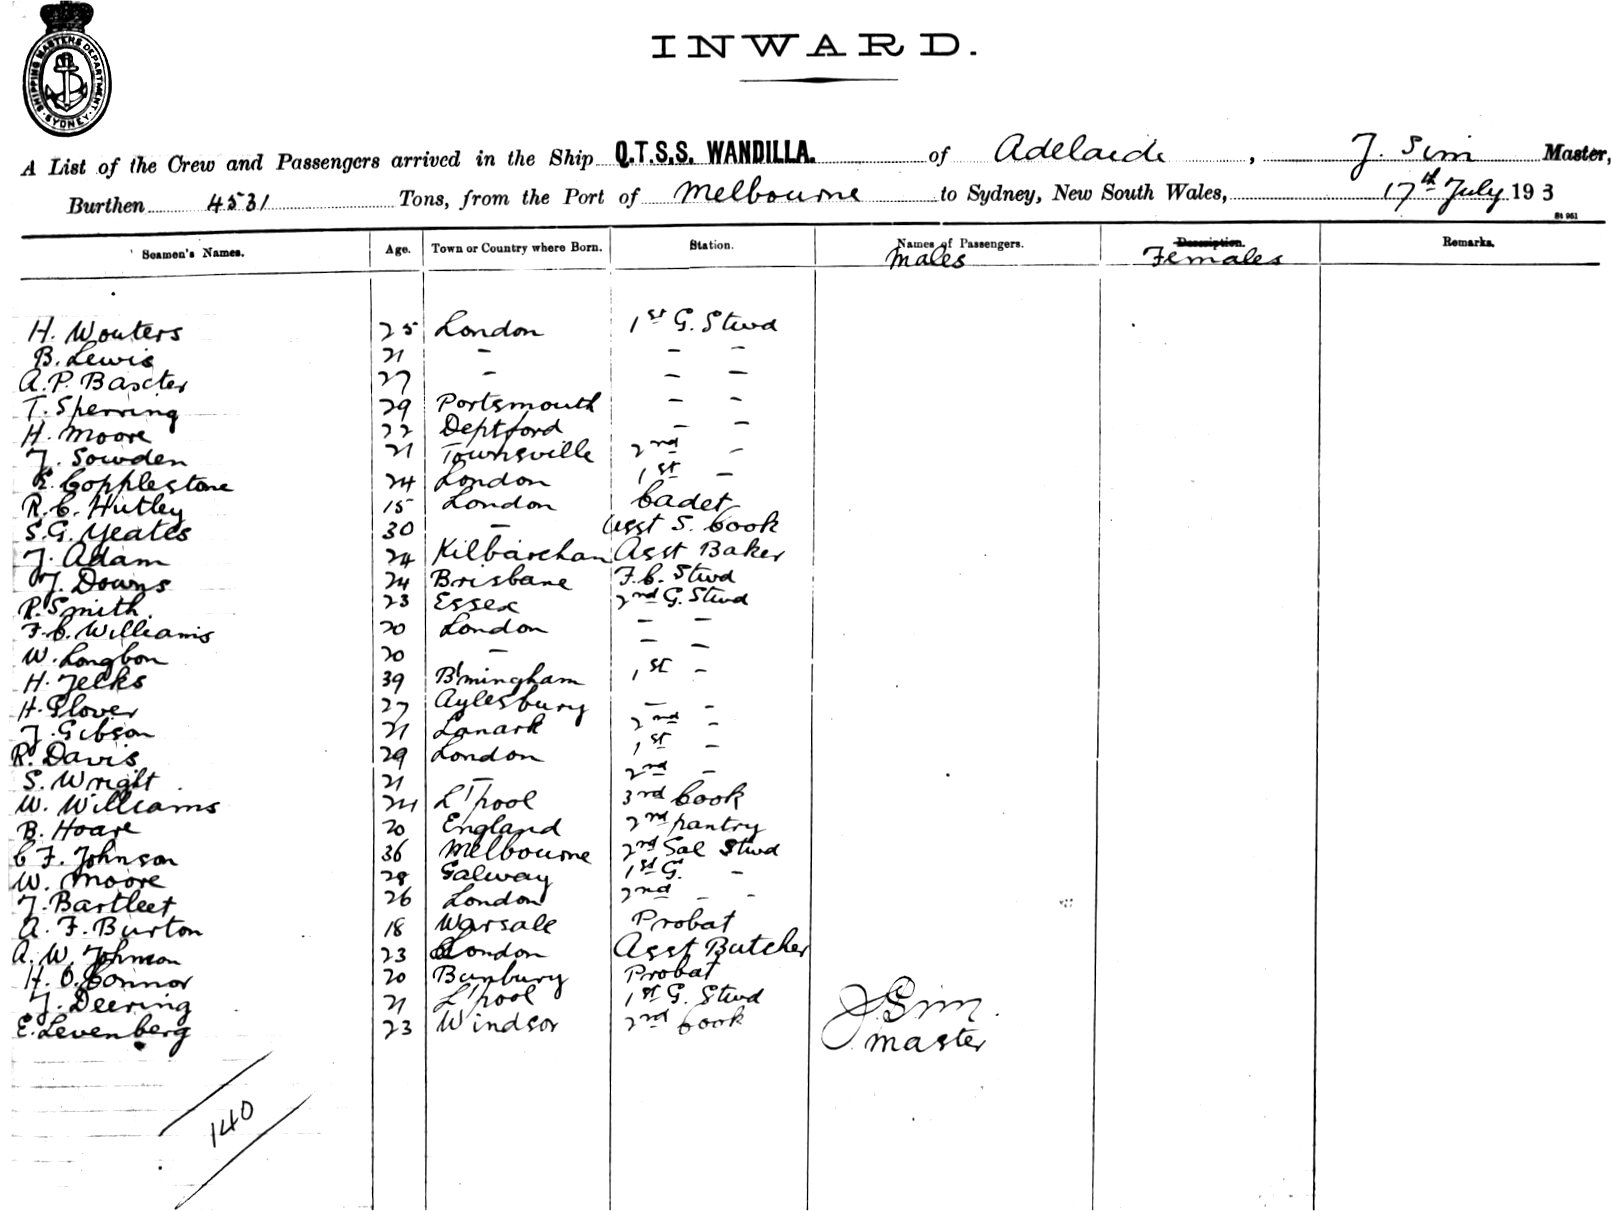 SHIPPING MASTERS DEPARTMENT
SYDNEY
INWARD.
A List of the Crew and Passengers arrived in the Ship Q.T.S.S. WANDILLA. of Adelaide, J. Sim Master,
Burthen 4531 Tons, from the Port of Melbourne to Sydney, New South Wales, 17th July 193
St 961
Seamen's Names. Age. Town or Country where Born. Station. Names of Passengers. Description. Remarks.
Males Females
H. Wouters 25 London 1st G. Stwd
B. Lewis 21 - - -
A. P. Baxter 27 - - -
T. Sperring 29 Portsmouth - -
H. Moore 22 Deptford - -
J. Sowden 21 Townsville 2nd -
E. Copplestone 24 London 1st -
R. C. Hutley 15 London Cadet
S. G. Yeates 30 - Asst S. Cook
J. Adam 24 Kilbarchan Asst Baker
J. Downs 24 Brisbane F.C. Stwd
R. Smith. 23 Essex 2nd G. Stwd
F. C. Williams 20 London - -
W. Longbon 20 - - -
H. Jelks 39 B'mingham 1st -
H. Glover 27 Aylesbury - -
J. Gibson 21 Lanark 2nd -
R. Davis 29 London 1st -
S. Wright 21 - 2nd -
W. Williams 24 L'pool 3rd Cook
B. Hoare 20 England 2nd pantry
C F. Johnson 36 Melbourne 2nd Sal Stwd
W. Moore 28 Galway 1st G. -
J. Bartleet 26 London 2nd - -
A. F. Burton 18 Warsale Probat
A. W. Johnson 23 London Asst Butcher
H. O. Connor 20 Bunbury Probat
J. Deering 21 L'pool 1st G. Stwd
E. Levenberg 23 Windsor 2nd Cook
J. Sim.
Master
140